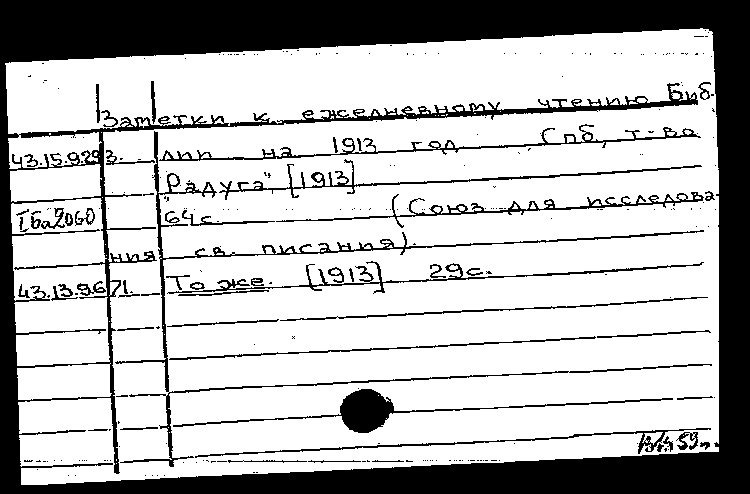 Заметки к ежедневному чтению Биб.
43.15.9.293. лии на 1913 год Спб, т-во
"Радуга", [1913]
64 с. (Союз для исследова-
ния св. писания).
43.13.9.671. То же. [1913] 29 с.